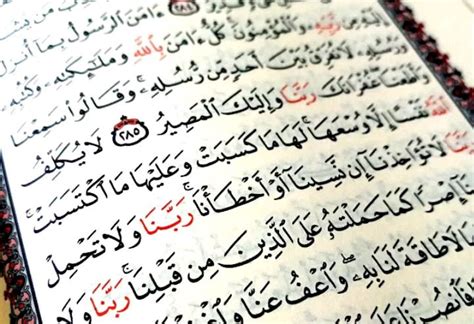 ٢٨٤ ءَامَنَ ٱلرَّسُولُ بِمَآ أُنزِلَ
إِلَيْهِ مِن رَّبِّهِۦ وَٱلْمُؤْمِنُونَ ۚ كُلٌّ ءَامَنَ بِٱللَّهِ وَمَلَٰٓئِكَتِهِۦ وَكُتُبِهِۦ
وَرُسُلِهِۦ لَا نُفَرِّقُ بَيْنَ أَحَدٍ مِّن رُّسُلِهِۦ ۚ وَقَالُوا۟ سَمِعْنَا
وَأَطَعْنَا ۖ غُفْرَانَكَ رَبَّنَا وَإِلَيْكَ ٱلْمَصِيرُ ٢٨٥ لَا يُكَلِّفُ
ٱللَّهُ نَفْسًا إِلَّا وُسْعَهَا ۚ لَهَا مَا كَسَبَتْ وَعَلَيْهَا مَا ٱكْتَسَبَتْ ۗ
رَبَّنَا لَا تُؤَاخِذْنَآ إِن نَّسِينَآ أَوْ أَخْطَأْنَا ۚ رَبَّنَا وَلَا تَحْمِلْ
إِصْرًا كَمَا حَمَلْتَهُۥ عَلَى ٱلَّذِينَ مِن قَبْلِنَا ۚ رَبَّنَا وَلَا
لَا طَاقَةَ لَنَا بِهِۦ ۖ وَٱعْفُ عَنَّا وَٱغْفِرْ